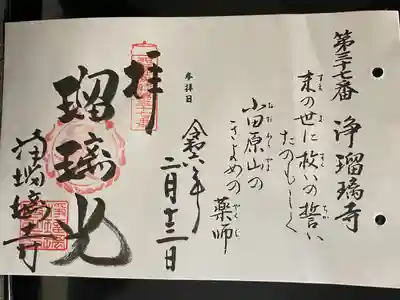 第三十七番 浄瑠璃寺
末の世に救いの誓い
たのもしく
小田原山の
きよめの薬師
参拝日
令和六年
二月十三日
拝
瑠璃光
浄瑠璃寺